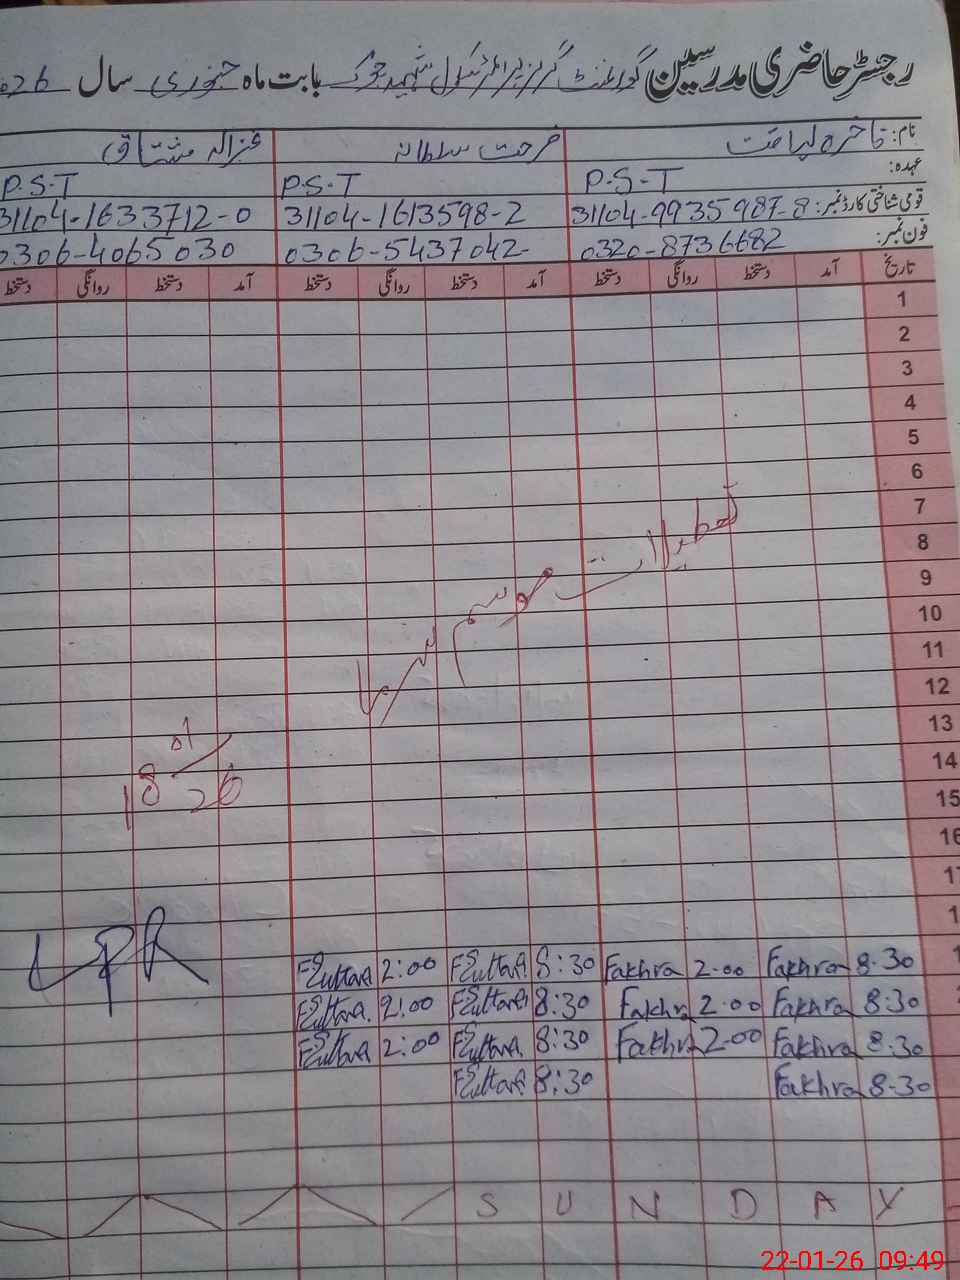 رجسٹر حاضری مدرسین گورنمنٹ گرلز پرائمری سکول شہید چوک بابت ماہ جنوری سال 26
نام: فاخرہ لیاقت فرحت سلطانہ غزالہ مشتاق
عہدہ: P.S.T P.S.T P.S.T
قومی شناختی کارڈ نمبر: 31104-9935987-8 31104-1613598-2 31104-1633712-0
فون نمبر: 0320-8736682 0306-5437042 0306-4065030
تاریخ آمد دستخط روانگی دستخط آمد دستخط روانگی دستخط آمد دستخط روانگی دستخط
1
2
3
4
5
6
7
8
9
10
11
12
13
14
15
16
تعطیلات موسم سرما
18 01 26
LPR
8.30 Fakhra 2.00 Fakhra 8:30 FSultana 2:00 FSultana
8.30 Fakhra 2.00 Fakhra 8:30 FSultana 2:00 FSultana
8.30 Fakhra 2.00 Fakhra 8:30 FSultana 2:00 FSultana
8.30 Fakhra 8:30 FSultana
S U N D A Y
22-01-26 09:49